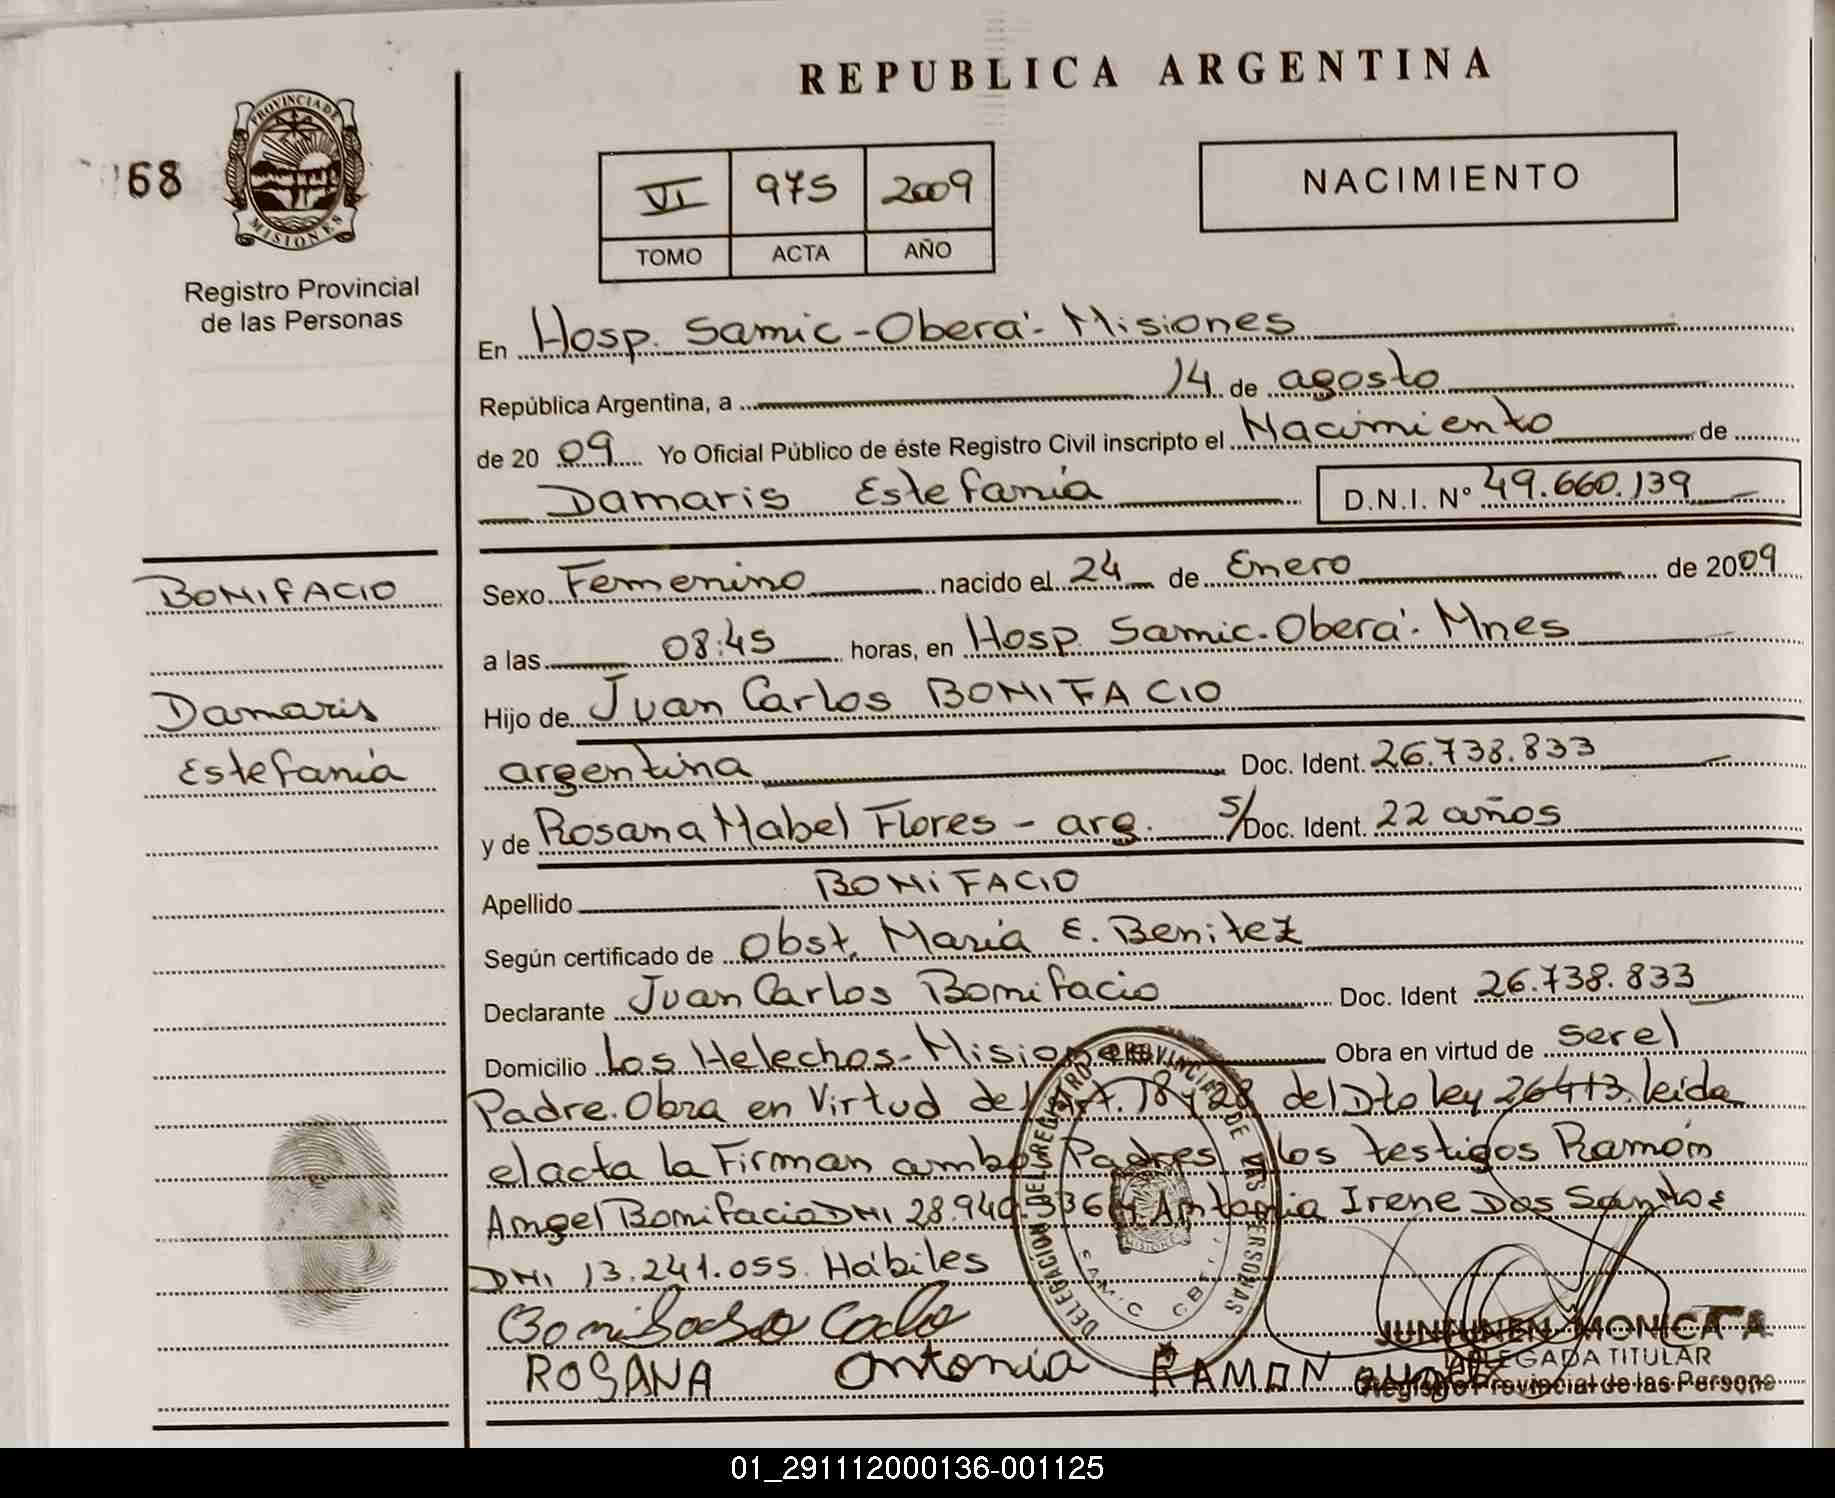 REPUBLICA ARGENTINA
68
PROVINCIA DE
MISIONES
Registro Provincial
de las Personas
VI 975 2009
TOMO ACTA AÑO
NACIMIENTO
En Hosp. Samic-Oberá- Misiones
República Argentina, a 14 de agosto
de 2009 Yo Oficial Público de éste Registro Civil inscripto el Nacimiento de
Damaris Estefanía D.N.I. Nº 49.660.139
BONIFACIO
Damaris
Estefanía
Sexo Femenino nacido el 24 de Enero de 2009
a las 08:45 horas, en Hosp. Samic-Oberá- Mnes
Hijo de Juan Carlos BONIFACIO
argentina Doc. Ident. 26.738.833
y de Rosana Mabel Flores - arg. S/Doc. Ident. 22 años
Apellido BONIFACIO
Según certificado de Obst. María E. Benitez
Declarante Juan Carlos Bonifacio Doc. Ident 26.738.833
Domicilio Los Helechos-Misiones Obra en virtud de ser el
Padre. Obra en Virtud del Art. 78 y 28 del Dto ley 26413. leida
el acta la Firman ambos Padres los testigos Ramón
Angel Bonifacio DNI 28.940.336 Antonia Irene Dos Santos
DNI 13.241.055. Hábiles
DELEGACION DEL REGISTRO PROVINCIAL DE LAS PERSONAS
SAMIC
ROSANA Antonia RAMON
JUNTUNEN MONICA
DELEGADA TITULAR
Registro Provincial de las Persona
01_291112000136-001125